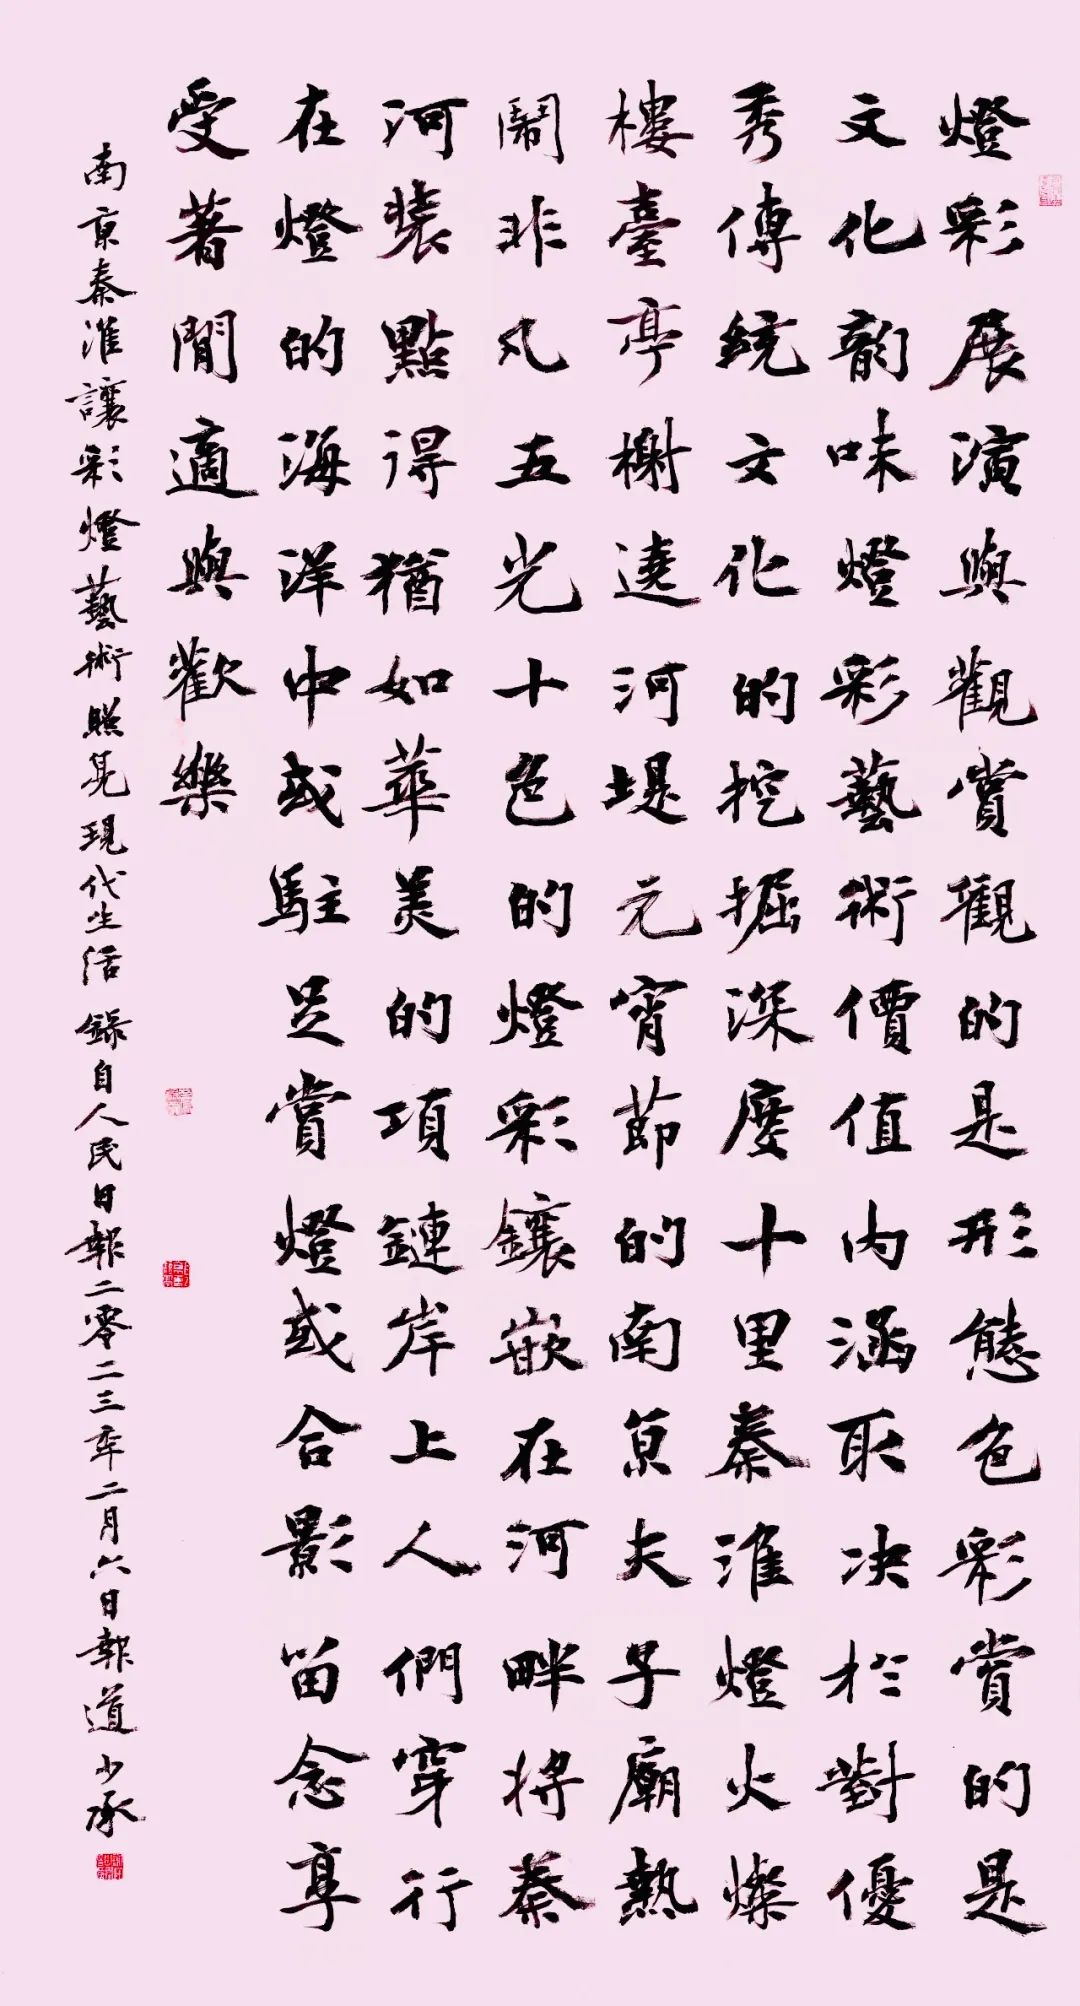 燈彩展演與觀賞觀的是形態色彩賞的是
文化韵味燈彩藝術價值内涵取决於對優
秀傳統文化的挖掘深度十里秦淮燈火燦
樓臺亭榭遶河堤元宵節的南京夫子廟熱
鬧非凡五光十色的燈彩鑲嵌在河畔將秦
河裝點得猶如華美的項鏈岸上人們穿行
在燈的海洋中或駐足賞燈或合影留念享
受著閒適與歡樂
南京秦淮讓彩燈藝術照亮現代生活 錄自人民日報二零二三年二月六日報道少承